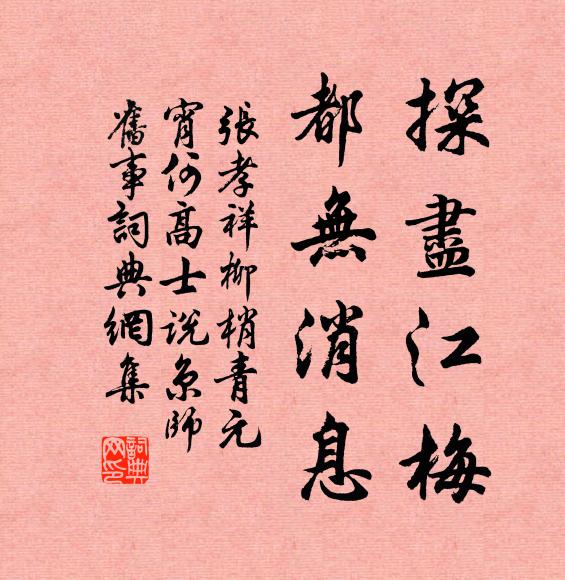 探盡江梅
都無消息
張孝祥柳梢青元
宵何高士說京師
舊事詞典網集
詞典網印